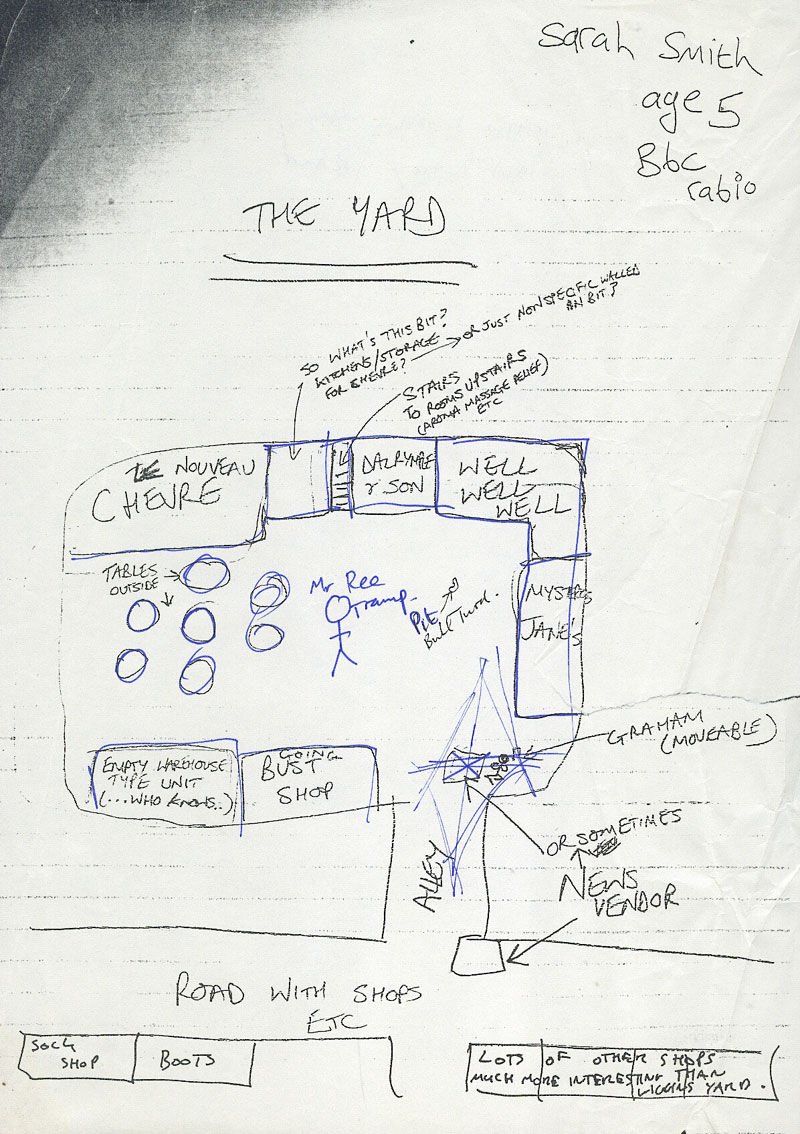 Sarah Smith
age 5
Bbc
rabio
THE YARD
SO WHAT'S THIS BIT?
KITCHENS/STORAGE
FOR CHEVRE?
OR JUST NONSPECIFIC WALLED
BIT?
STAIRS
TO ROOMS UPSTAIRS
(AROMA MASSAGE RELIEF)
ETC
LE NOUVEAU
CHEVRE
DALRYMPLE
& SON
WELL
WELL
WELL
TABLES
OUTSIDE
Mr Ree
Tramp.
Pit
Bull Turd.
MYSTERS
JANE'S
GRAHAM
(MOVEABLE)
EMPTY WAREHOUSE
TYPE UNIT
(...WHO KNOWS..)
GOING
BUST
SHOP
OR SOMETIMES
ALLEY
NEWS
VENDOR
ROAD WITH SHOPS
ETC
SOCK
SHOP
BOOTS
LOTS OF OTHER SHOPS
MUCH MORE INTERESTING THAN
YARD.